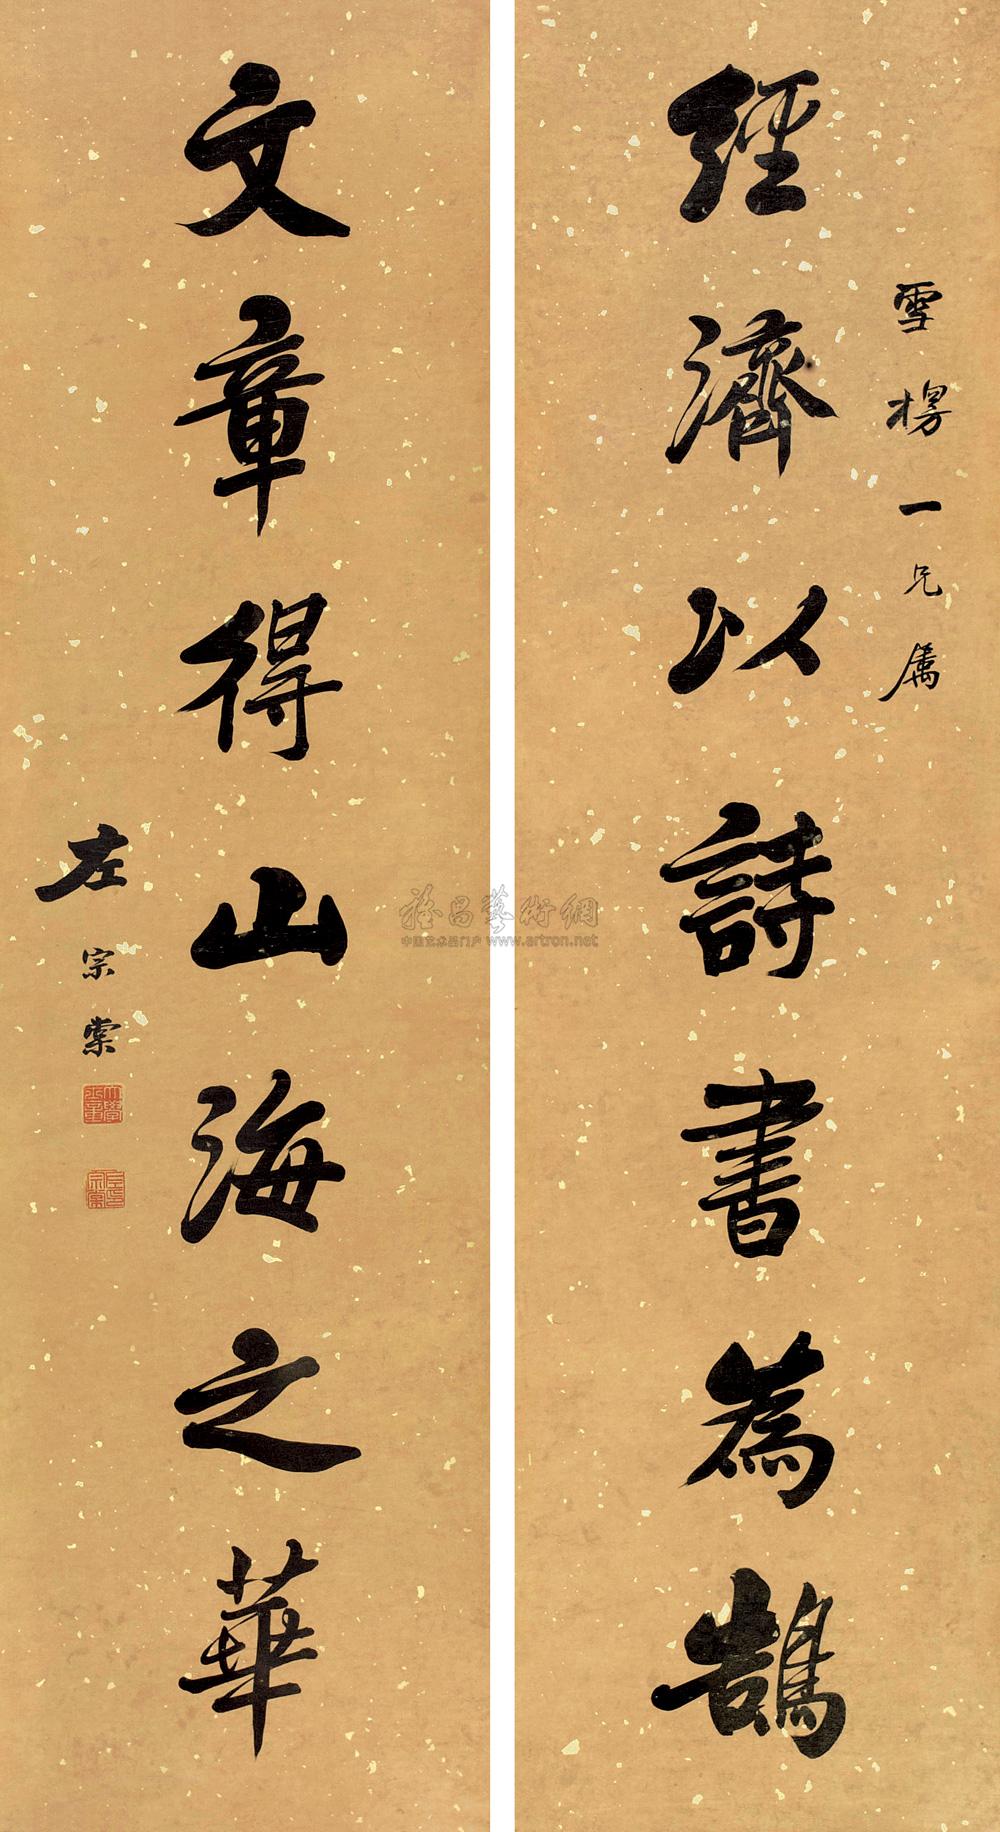 雪楞一兄属
經濟以詩書為鵠
文章得山海之華
左宗棠
雅昌藝術網
中国艺术品门户 www.artron.net